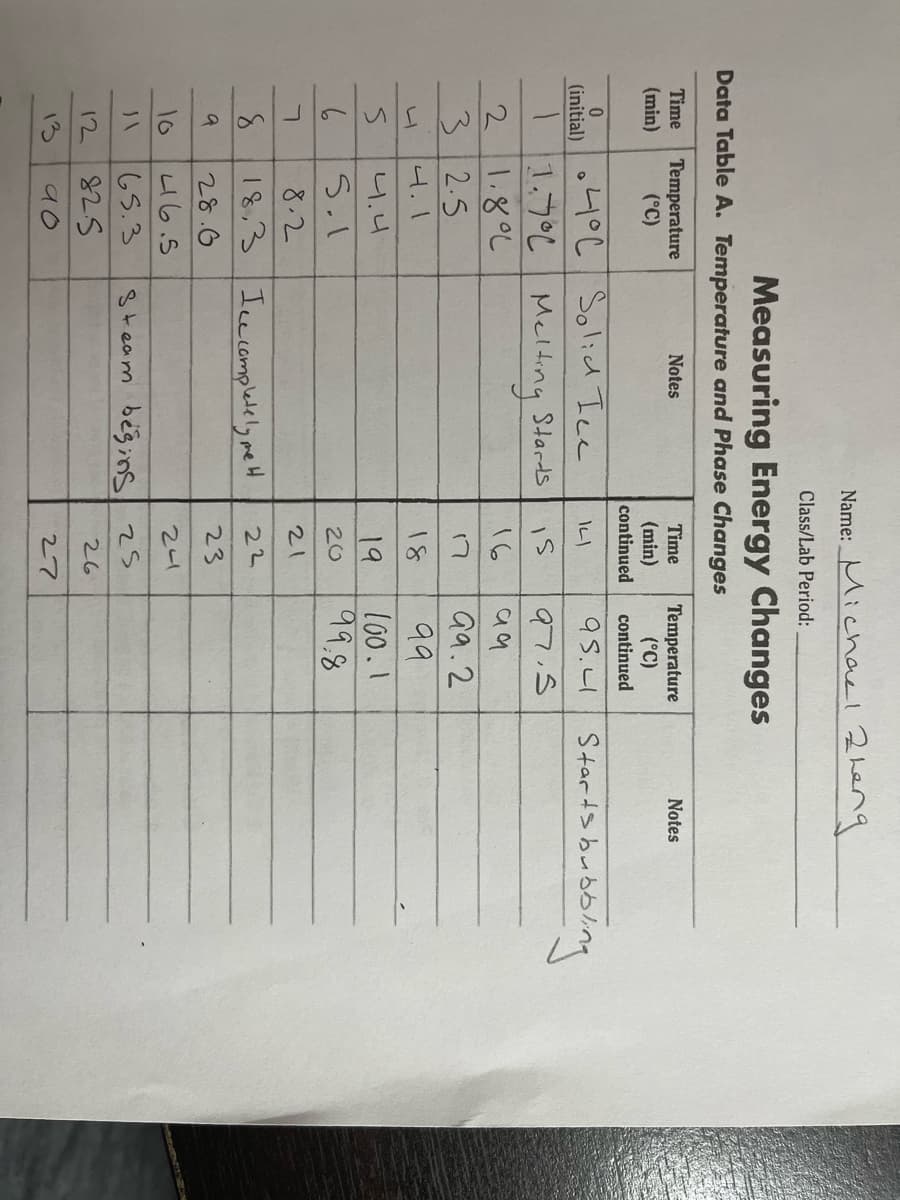 Name: Michael Zheng
Class/Lab Period:
Measuring Energy Changes
Data Table A. Temperature and Phase Changes
Time (min) Temperature (°C) Notes Time (min) continued Temperature (°C) continued Notes
0 (initial) .4°C Solid Ice 14 95.4 Starts bubbling
1 1.7°C Melting Starts 15 97.5
2 1.8°C 16 99
3 2.5 17 99.2
4 4.1 18 99
5 4.4 19 100.1
6 5.1 20 99.8
7 8.2 21
8 18.3 Ice completely melt 22
9 28.0 23
10 46.5 24
11 65.3 Steam begins 25
12 82.5 26
13 90 27